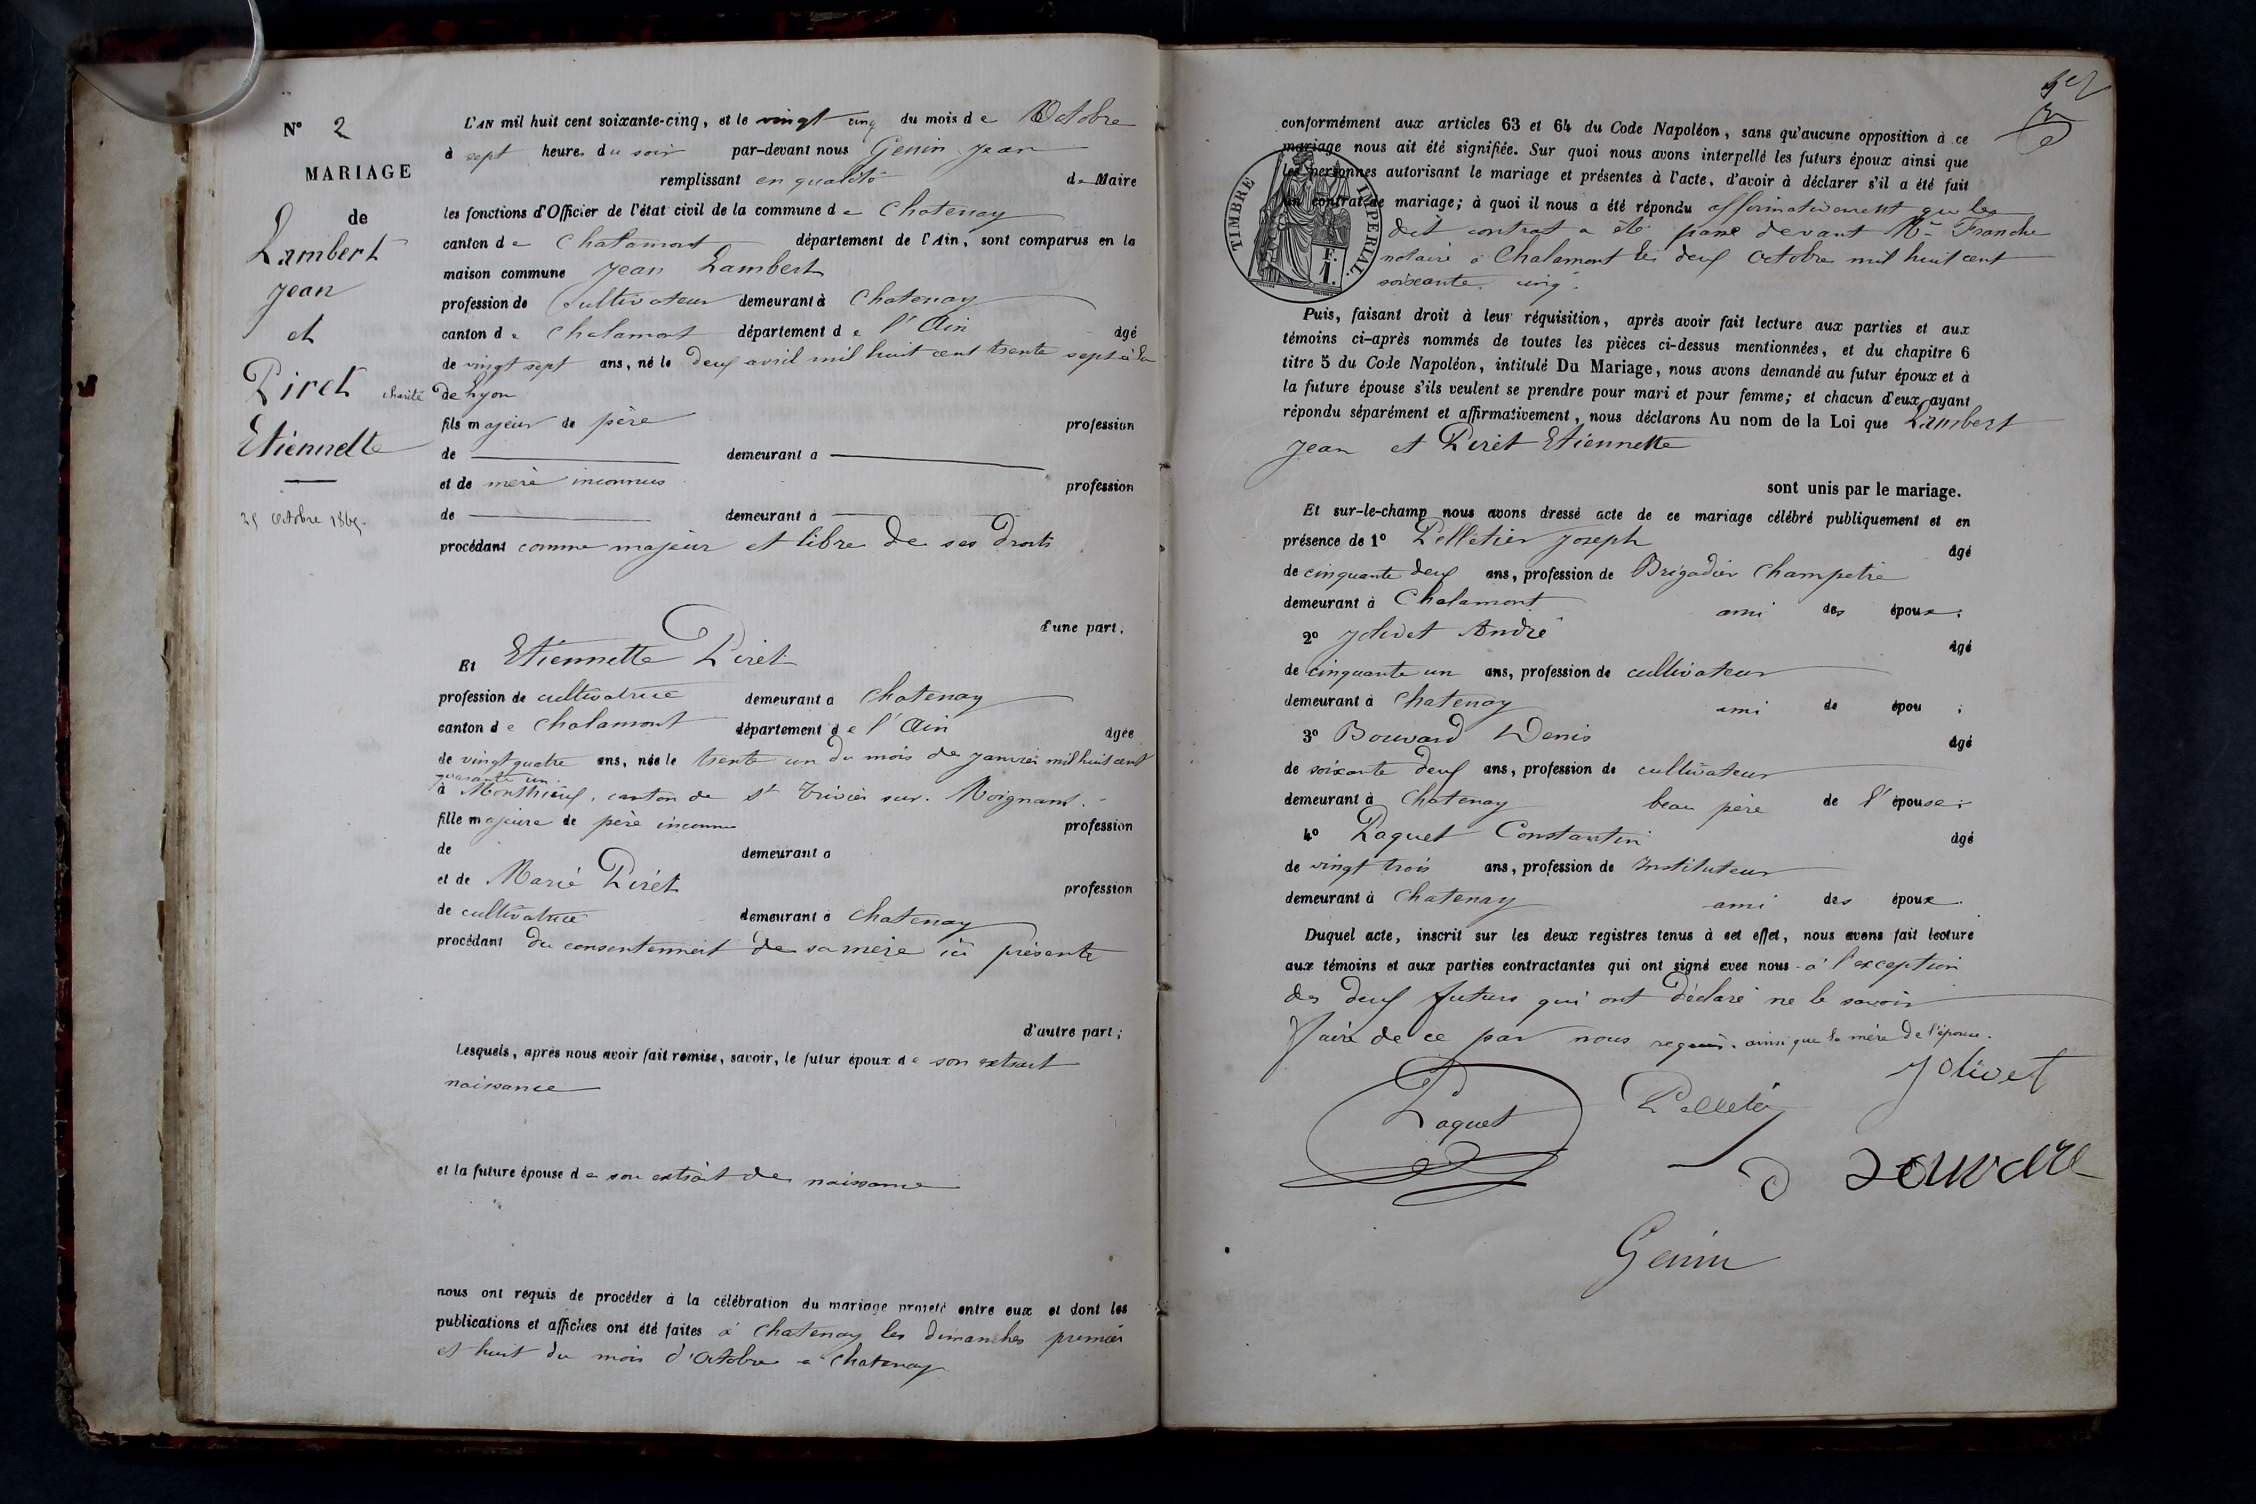 N° 2
MARIAGE
de
Lambert
jean
et
Piret
Etiennette
25 octobre 1865.
L'AN mil huit cent soixante-cinq, et le vingt cinq du mois de Octobre
à sept heures du soir par-devant nous Genin Jean
remplissant en qualité de Maire
les fonctions d'Officier de l'état civil de la commune de Chatenay
canton de Chalamont département de l'Ain, sont comparus en la
maison commune Jean Lambert
profession de Cultivateur demeurant à Chatenay
canton de Chalamont département de l'Ain âgé
de vingt sept ans, né le deux avril mil huit cent trente sept à la
charité de Lyon
fils majeur de père profession
de demeurant à
et de mère inconnus profession
de demeurant à
procédant comme majeur et libre de ses droits
d'une part.
Et Etiennette Piret
profession de cultivatrice demeurant à Chatenay
canton de Chalamont département de l'Ain âgée
de vingt quatre ans, née le trente un du mois de janvier mil huit cent
quarante un.
à Monthieux, canton de St Trivier sur Moignans.
fille majeure de père inconnu profession
de demeurant à
et de Marie Piret profession
de cultivatrice demeurant à Chatenay
procédant du consentement de sa mère ici présente
d'autre part;
Lesquels, après nous avoir fait remise, savoir, le futur époux de son extrait
naissance
et la future épouse de son extrait de naissance
nous ont requis de procéder à la célébration du mariage projeté entre eux et dont les
publications et affiches ont été faites à Chatenay les dimanches premier
et huit du mois d'Octobre à Chatenay
conformément aux articles 63 et 64 du Code Napoléon, sans qu'aucune opposition à ce
mariage nous ait été signifiée. Sur quoi nous avons interpellé les futurs époux ainsi que
les personnes autorisant le mariage et présentes à l'acte, d'avoir à déclarer s'il a été fait
un contrat de mariage; à quoi il nous a été répondu affirmativement que le
dit contrat a été passé devant Me Franche
notaire à Chalamont le deux octobre mil huit cent
soixante cinq.
TIMBRE IMPERIAL.
F.
1.
Puis, faisant droit à leur réquisition, après avoir fait lecture aux parties et aux
témoins ci-après nommés de toutes les pièces ci-dessus mentionnées, et du chapitre 6
titre 5 du Code Napoléon, intitulé Du Mariage, nous avons demandé au futur époux et à
la future épouse s'ils veulent se prendre pour mari et pour femme; et chacun d'eux ayant
répondu séparément et affirmativement, nous déclarons Au nom de la Loi que Lambert
Jean et Piret Etiennette
sont unis par le mariage.
Et sur-le-champ nous avons dressé acte de ce mariage célébré publiquement et en
présence de 1° Pelletier Joseph âgé
de cinquante deux ans, profession de Brigadier Champetre
demeurant à Chalamont ami des époux;
2° Jolivet André âgé
de cinquante un ans, profession de cultivateur
demeurant à Chatenay ami de épou ;
3° Bouvard Denis âgé
de soixante deux ans, profession de cultivateur
demeurant à Chatenay beau père de l'épouse;
4° Paquet Constantin âgé
de vingt trois ans, profession de Instituteur
demeurant à Chatenay ami des époux.
Duquel acte, inscrit sur les deux registres tenus à cet effet, nous avons fait lecture
aux témoins et aux parties contractantes qui ont signé avec nous à l'exception
des deux futurs qui ont déclaré ne le savoir
faire de ce par nous requis. ainsi que la mère de l'épouse.
Jolivet
Paquet
Genin